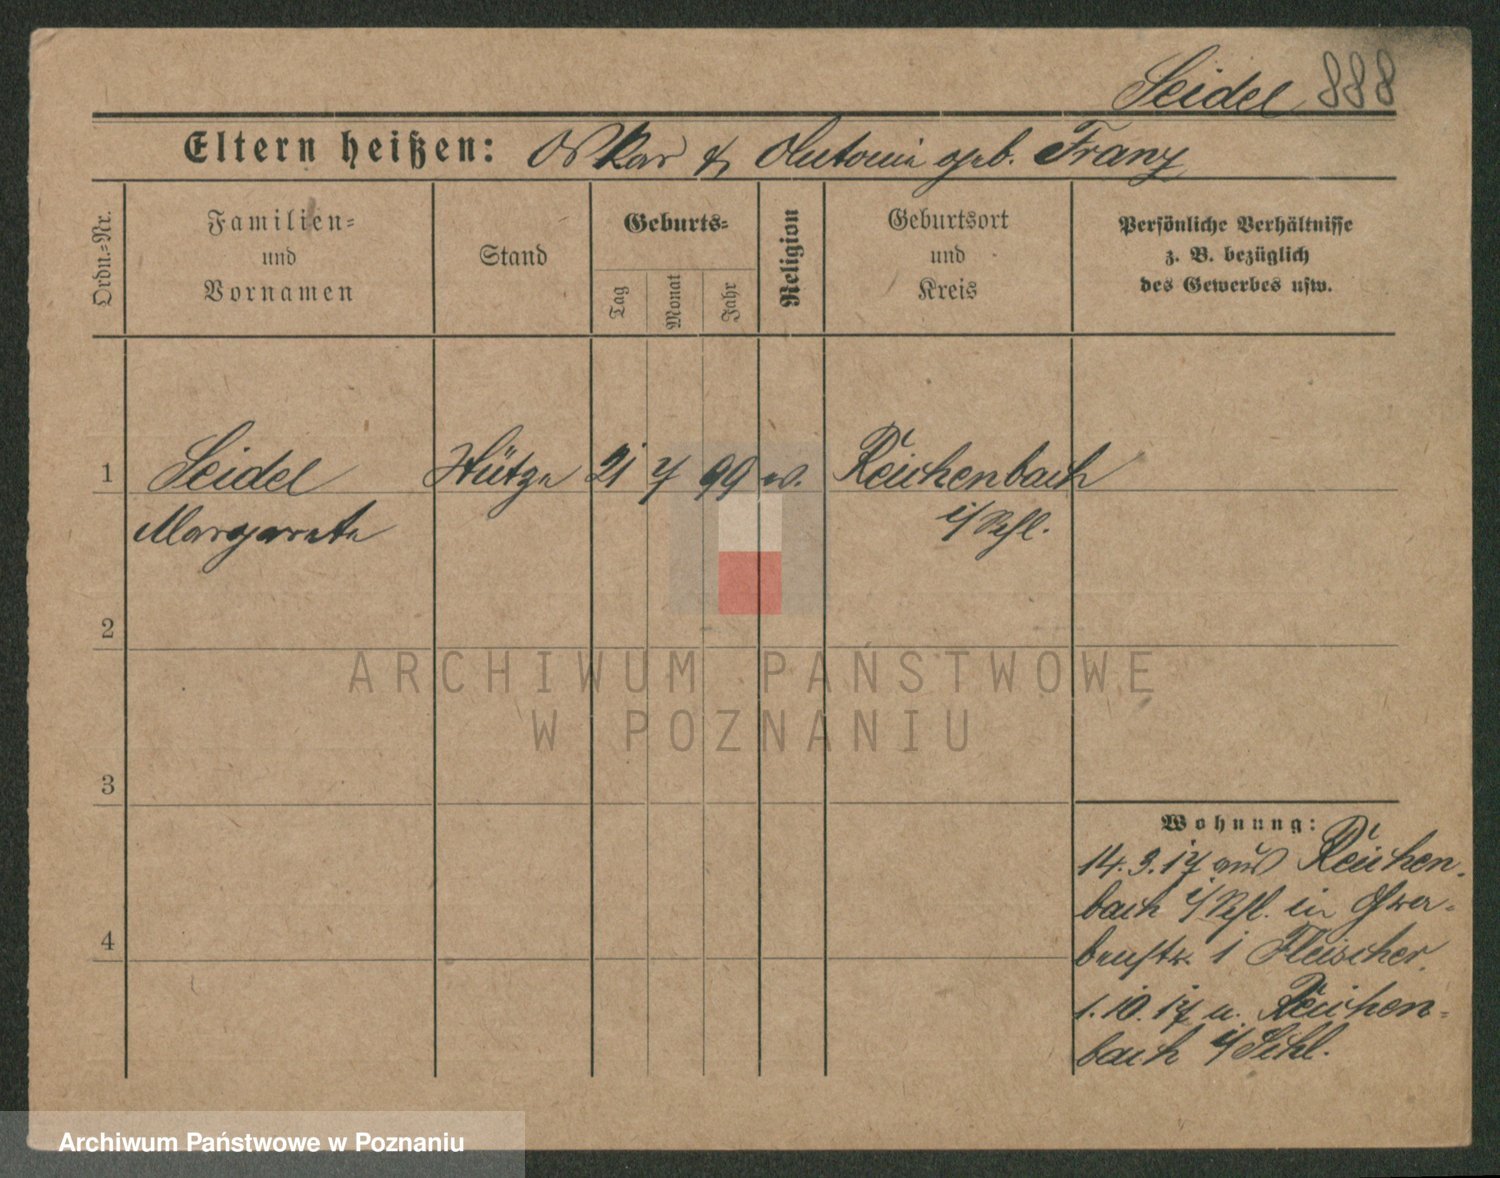 Seidel 888
Eltern heißen: Oskar & Antonie geb. Franz
Ordn.-Nr.
Familien-
und
Vornamen
Stand
Geburts-
Tag
Monat
Jahr
Religion
Geburtsort
und
Kreis
Persönliche Verhältnisse
z. B. bezüglich
des Gewerbes usw.
1 Seidel Stütze 21 7 99 ev. Reichenbach
Margarete i/Schl.
2
3
4
Wohnung:
14. 3. 17 aus Reichen-
bach i/Schl. in
1 Fleischer.
1. 10. 17 n. Reichen-
bach i/Schl.
ARCHIWUM PAŃSTWOWE
W POZNANIU
Archiwum Państwowe w Poznaniu